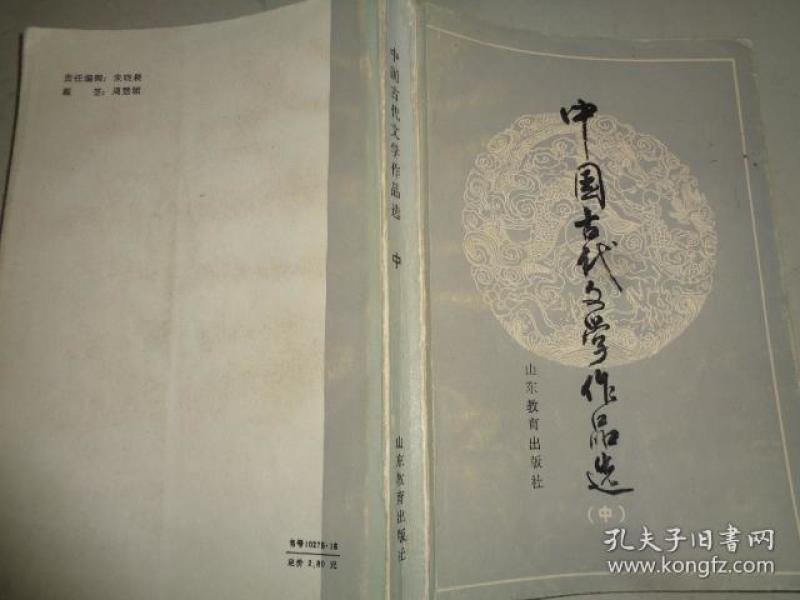 责任编辑：朱晓晨
题 签：周慧珺
书号10275·16
定价 2.80 元
中国古代文学作品选 中
山东教育出版社
中国古代文学作品选
（中）
山东教育出版社
孔夫子旧书网
www.kongfz.com